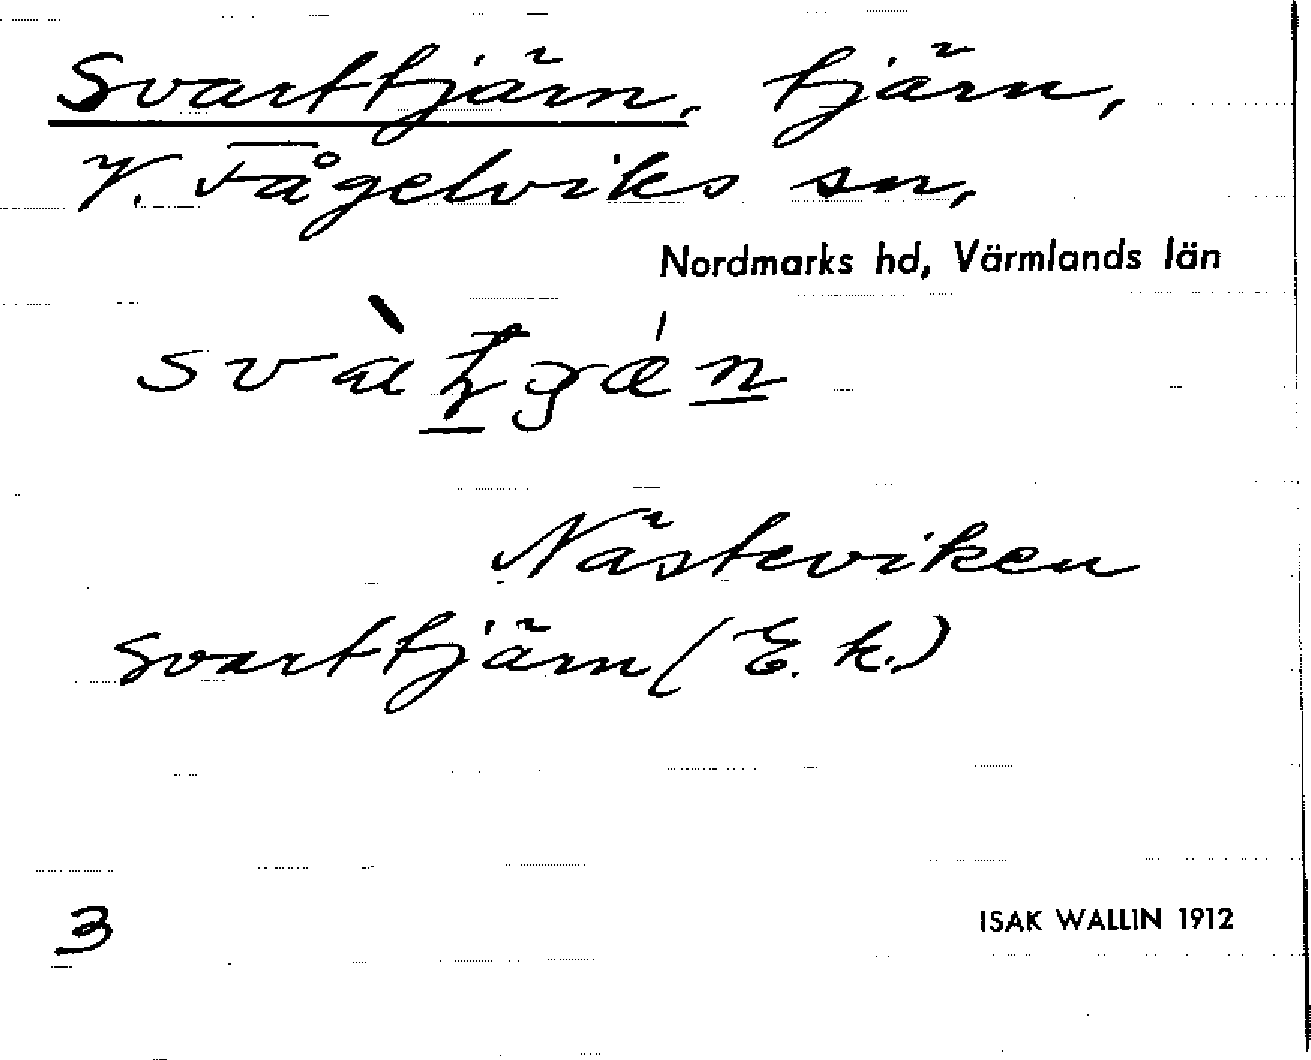 Svarttjärn, tjärn,
V. Fågelviks sn,
Nordmarks hd, Värmlands län
Nästeviken
Svarttjärn (E. k.)
3
ISAK WALLIN 1912